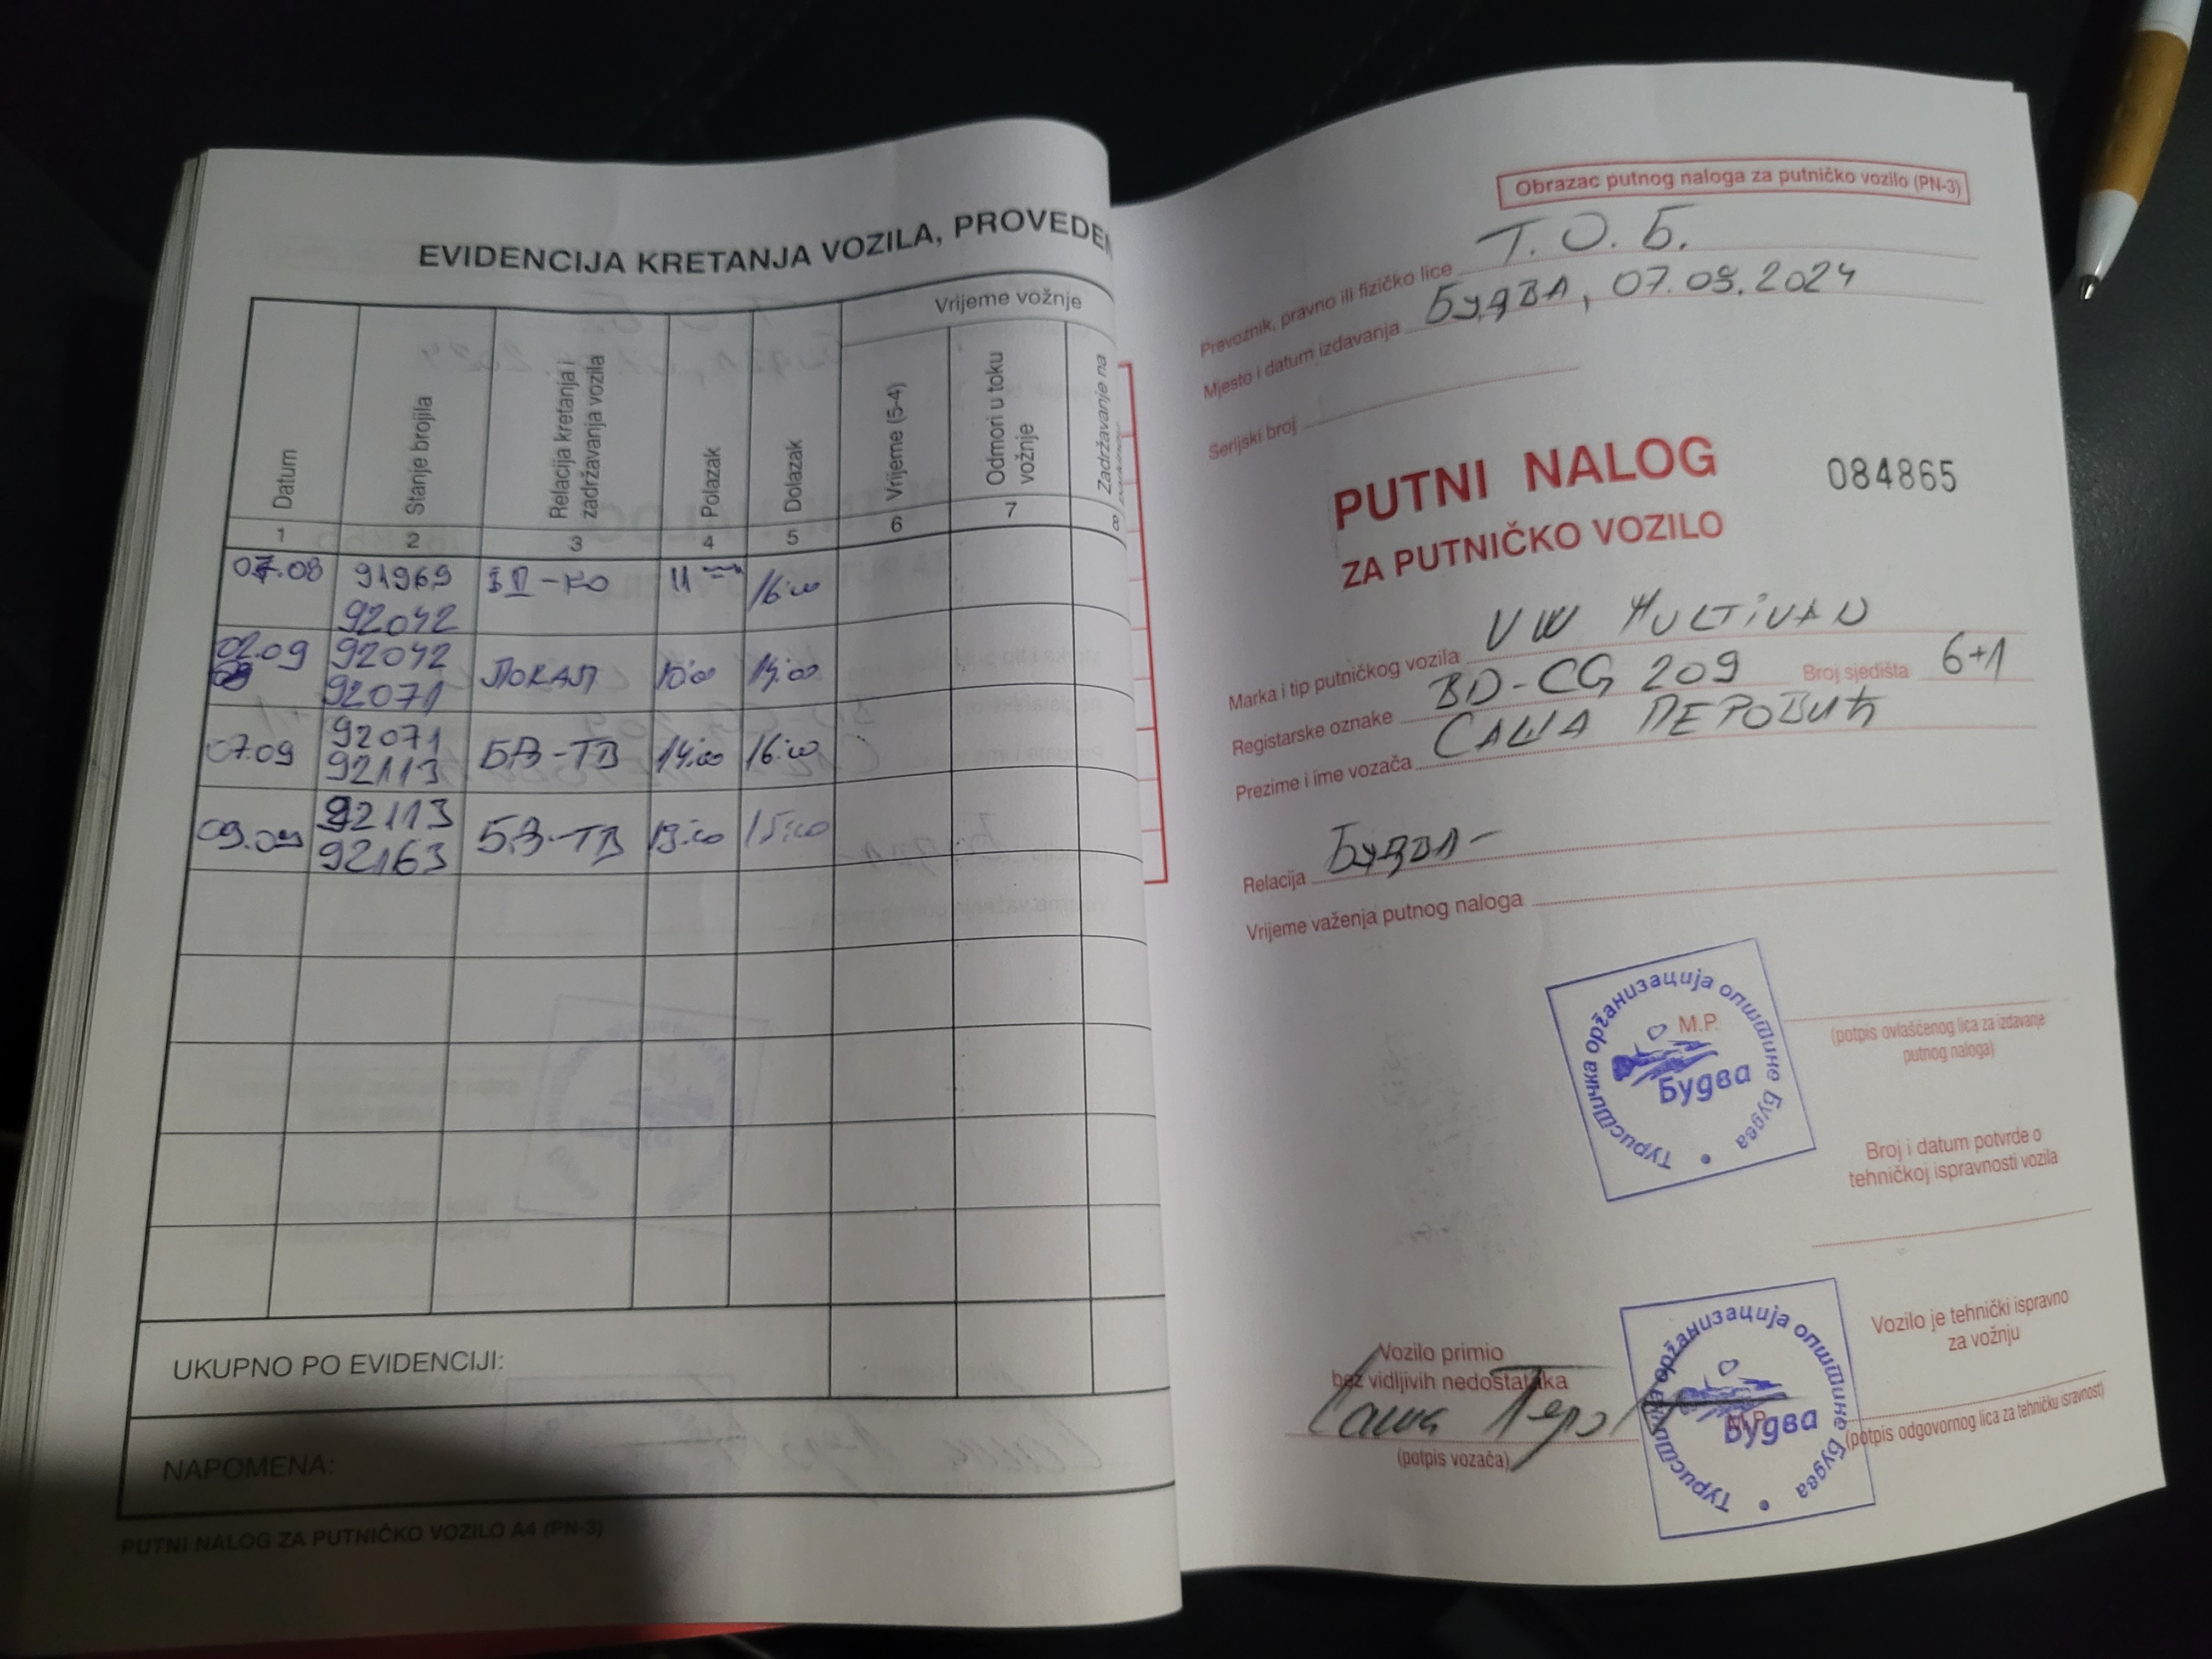 EVIDENCIJA KRETANJA VOZILA, PROVEDEN
Vrijeme vožnje
Datum
Stanje brojila
Relacija kretanja i
zadržavanja vozila
Polazak
Dolazak
Vrijeme (5-4)
Odmori u toku
vožnje
Zadržavanje na
1 2 3 4 5 6 7 8
07.08 91969 11 16:00
92042
02.09 92042 ЛОКАЛ 10:00 14:00
92071
07.09 92071 БВ-ТВ 14:00 16:00
92113
09.09 92113 БВ-ТВ 13:00 15:00
92163
UKUPNO PO EVIDENCIJI:
NAPOMENA:
PUTNI NALOG ZA PUTNIČKO VOZILO A4 (PN-3)
Obrazac putnog naloga za putničko vozilo (PN-3)
Prevoznik, pravno ili fizičko lice Т.О.Б.
Mjesto i datum izdavanja БУДВА, 07.09.2024
Serijski broj
PUTNI NALOG 084865
ZA PUTNIČKO VOZILO
Marka i tip putničkog vozila VW MULTIVAN
Registarske oznake BD-CG 209 Broj sjedišta 6+1
Prezime i ime vozača САША ПЕРОВИЋ
Relacija БУДВА-
Vrijeme važenja putnog naloga
Туристичка организација општине Будва
М.Р.
Будва
(potpis ovlašćenog lica za izdavanje
putnog naloga)
Broj i datum potvrde o
tehničkoj ispravnosti vozila
Vozilo je tehnički ispravno
za vožnju
Vozilo primio
bez vidljivih nedostataka
Саша
(potpis vozača)
Туристичка организација општине Будва
М.Р.
Будва
(potpis odgovornog lica za tehničku isravnost)